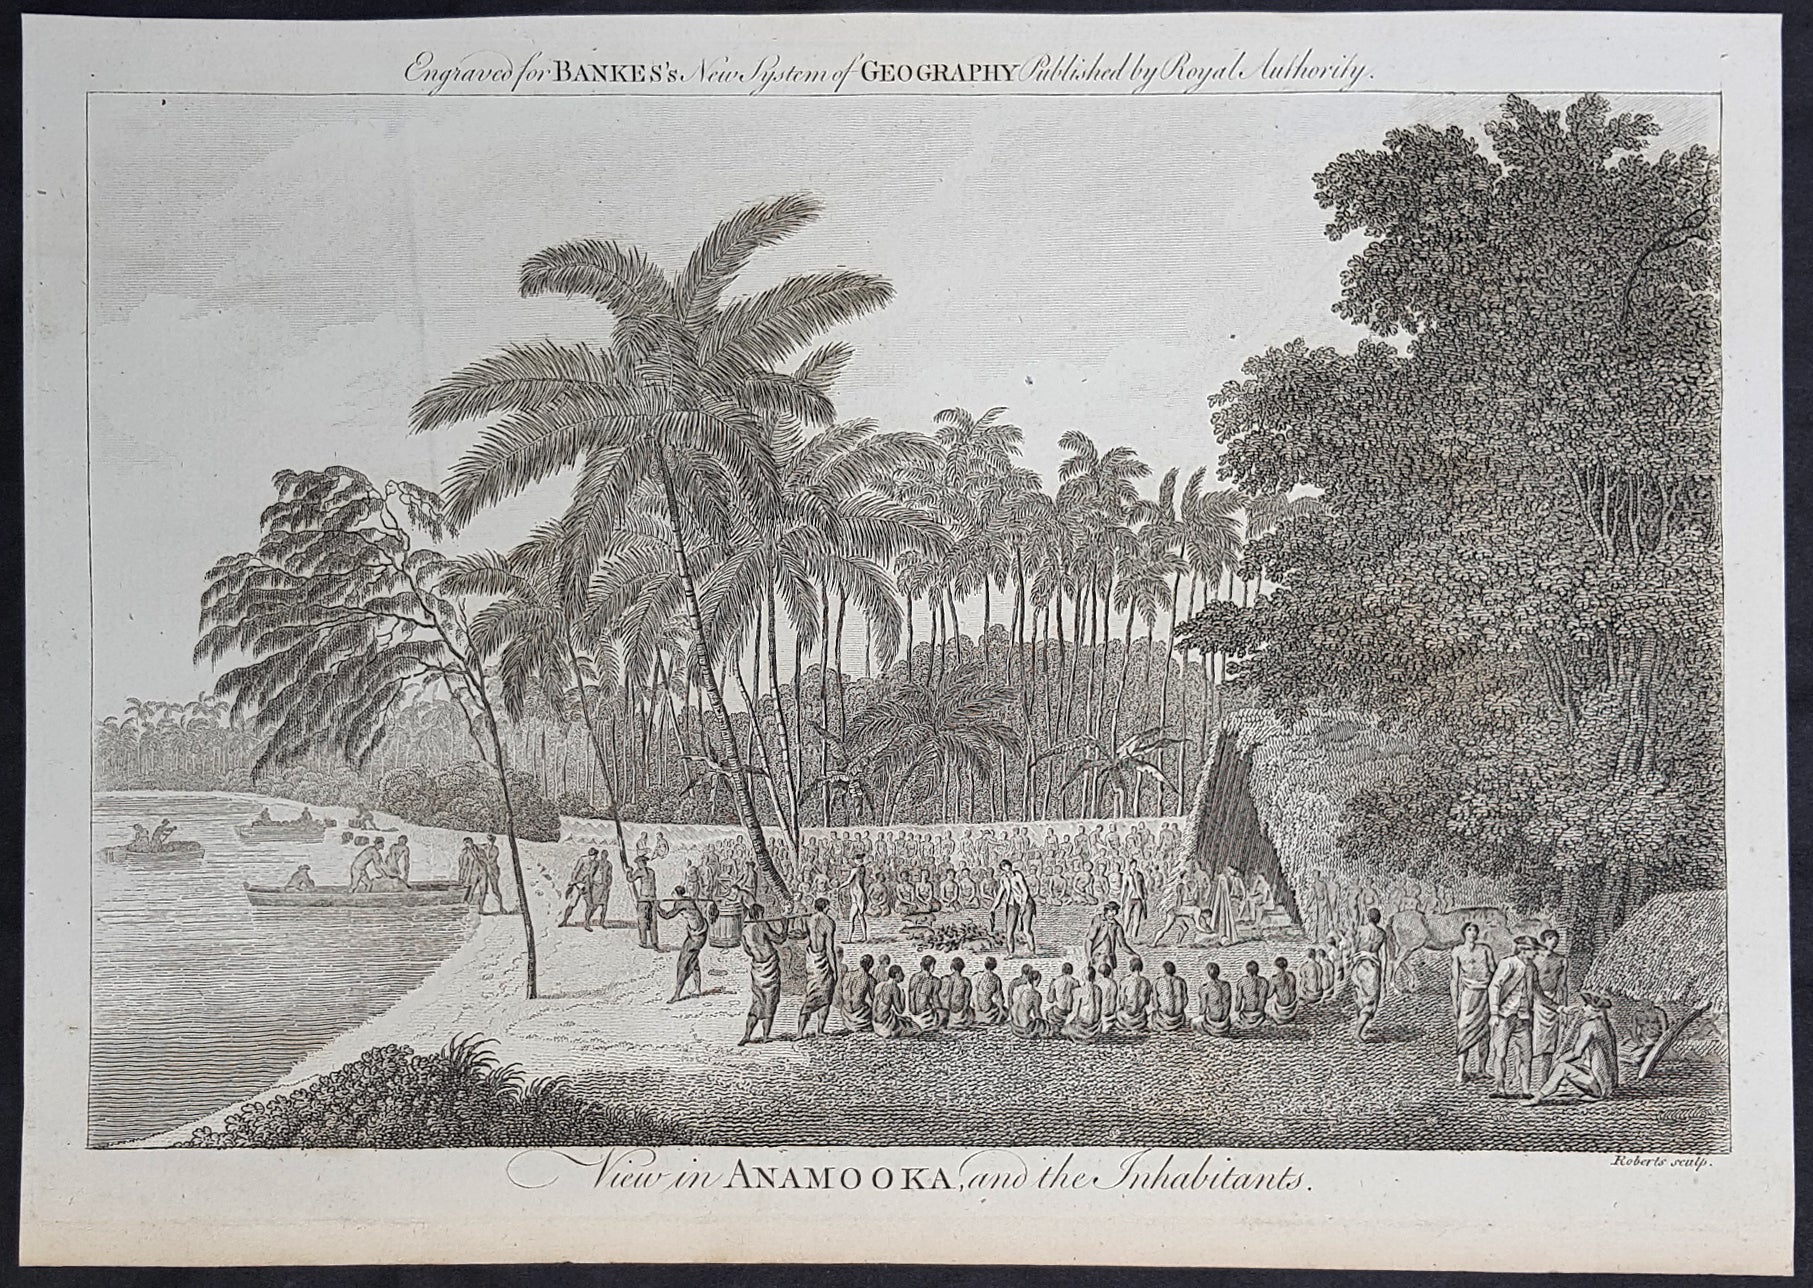 Engraved for BANKES's New System of GEOGRAPHY Published by Royal Authority.
Roberts sculp.
View in ANAMOOKA, and the Inhabitants.